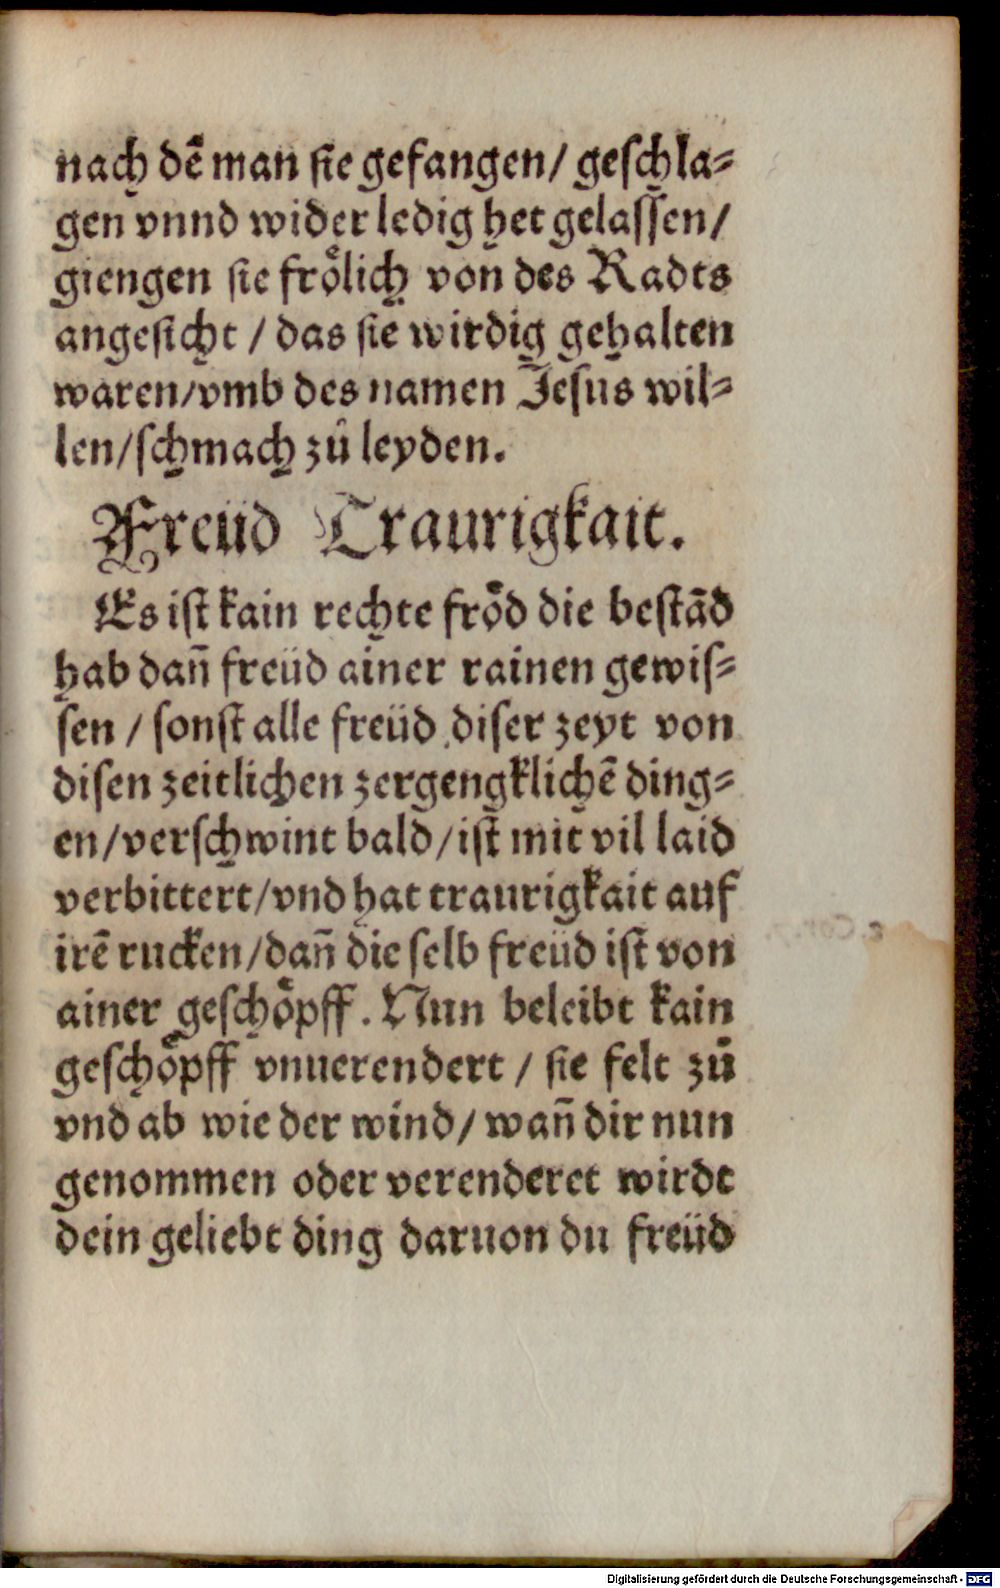 nach dẽ man sie gefangen/ geschla⸗
gen vnnd wider ledig het gelassen/
giengen sie froͤlich von des Radts
angesicht / das sie wirdig gehalten
waren/vmb des namen Jesus wil⸗
len/schmach zů leyden.
Freüd Traurigkait.
Es ist kain rechte froͤd die bestãd
hab dañ freüd ainer rainen gewis⸗
sen / sonst alle freüd diser zeyt von
disen zeitlichen zergengklichẽ ding⸗
en/verschwint bald/ist mit vil laid
verbittert/vnd hat traurigkait auf
irẽ rucken/dañ die selb freüd ist von
ainer geschoͤpff. Nun beleibt kain
geschoͤpff vnuerendert / sie felt zů
vnd ab wie der wind/ wañ dir nun
genommen oder verenderet wirdt
dein geliebt ding daruon du freüd
Digitalisierung gefördert durch die Deutsche Forschungsgemeinschaft - DFG